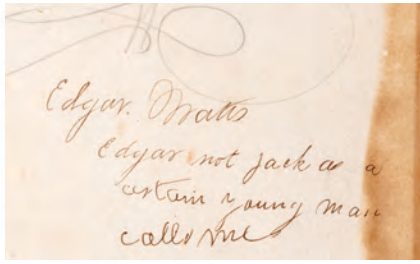 Edgar. Watts
Edgar not jack as a
certain young man
calls me